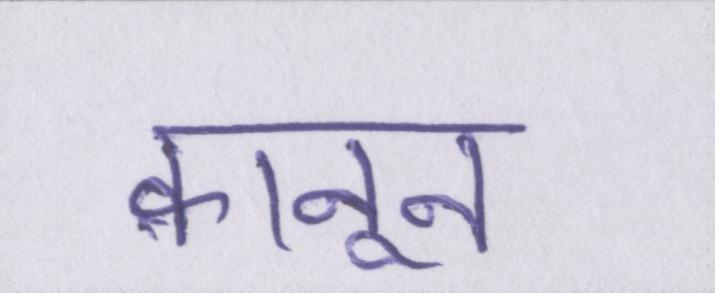 क़ानून